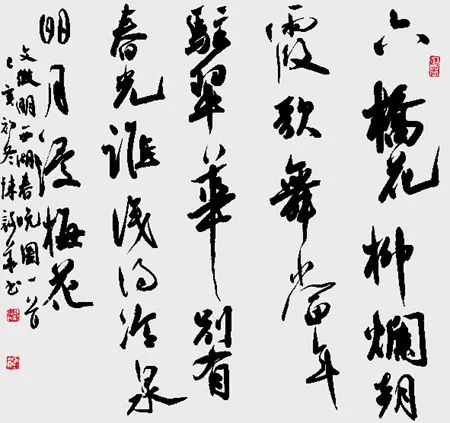 六橋花柳爛朝
霞歌舞當年
駐翠華別有
春光誰識得冷泉
明月浸梅花
文徵明西湖春晚圖一首
己亥初冬陳華書